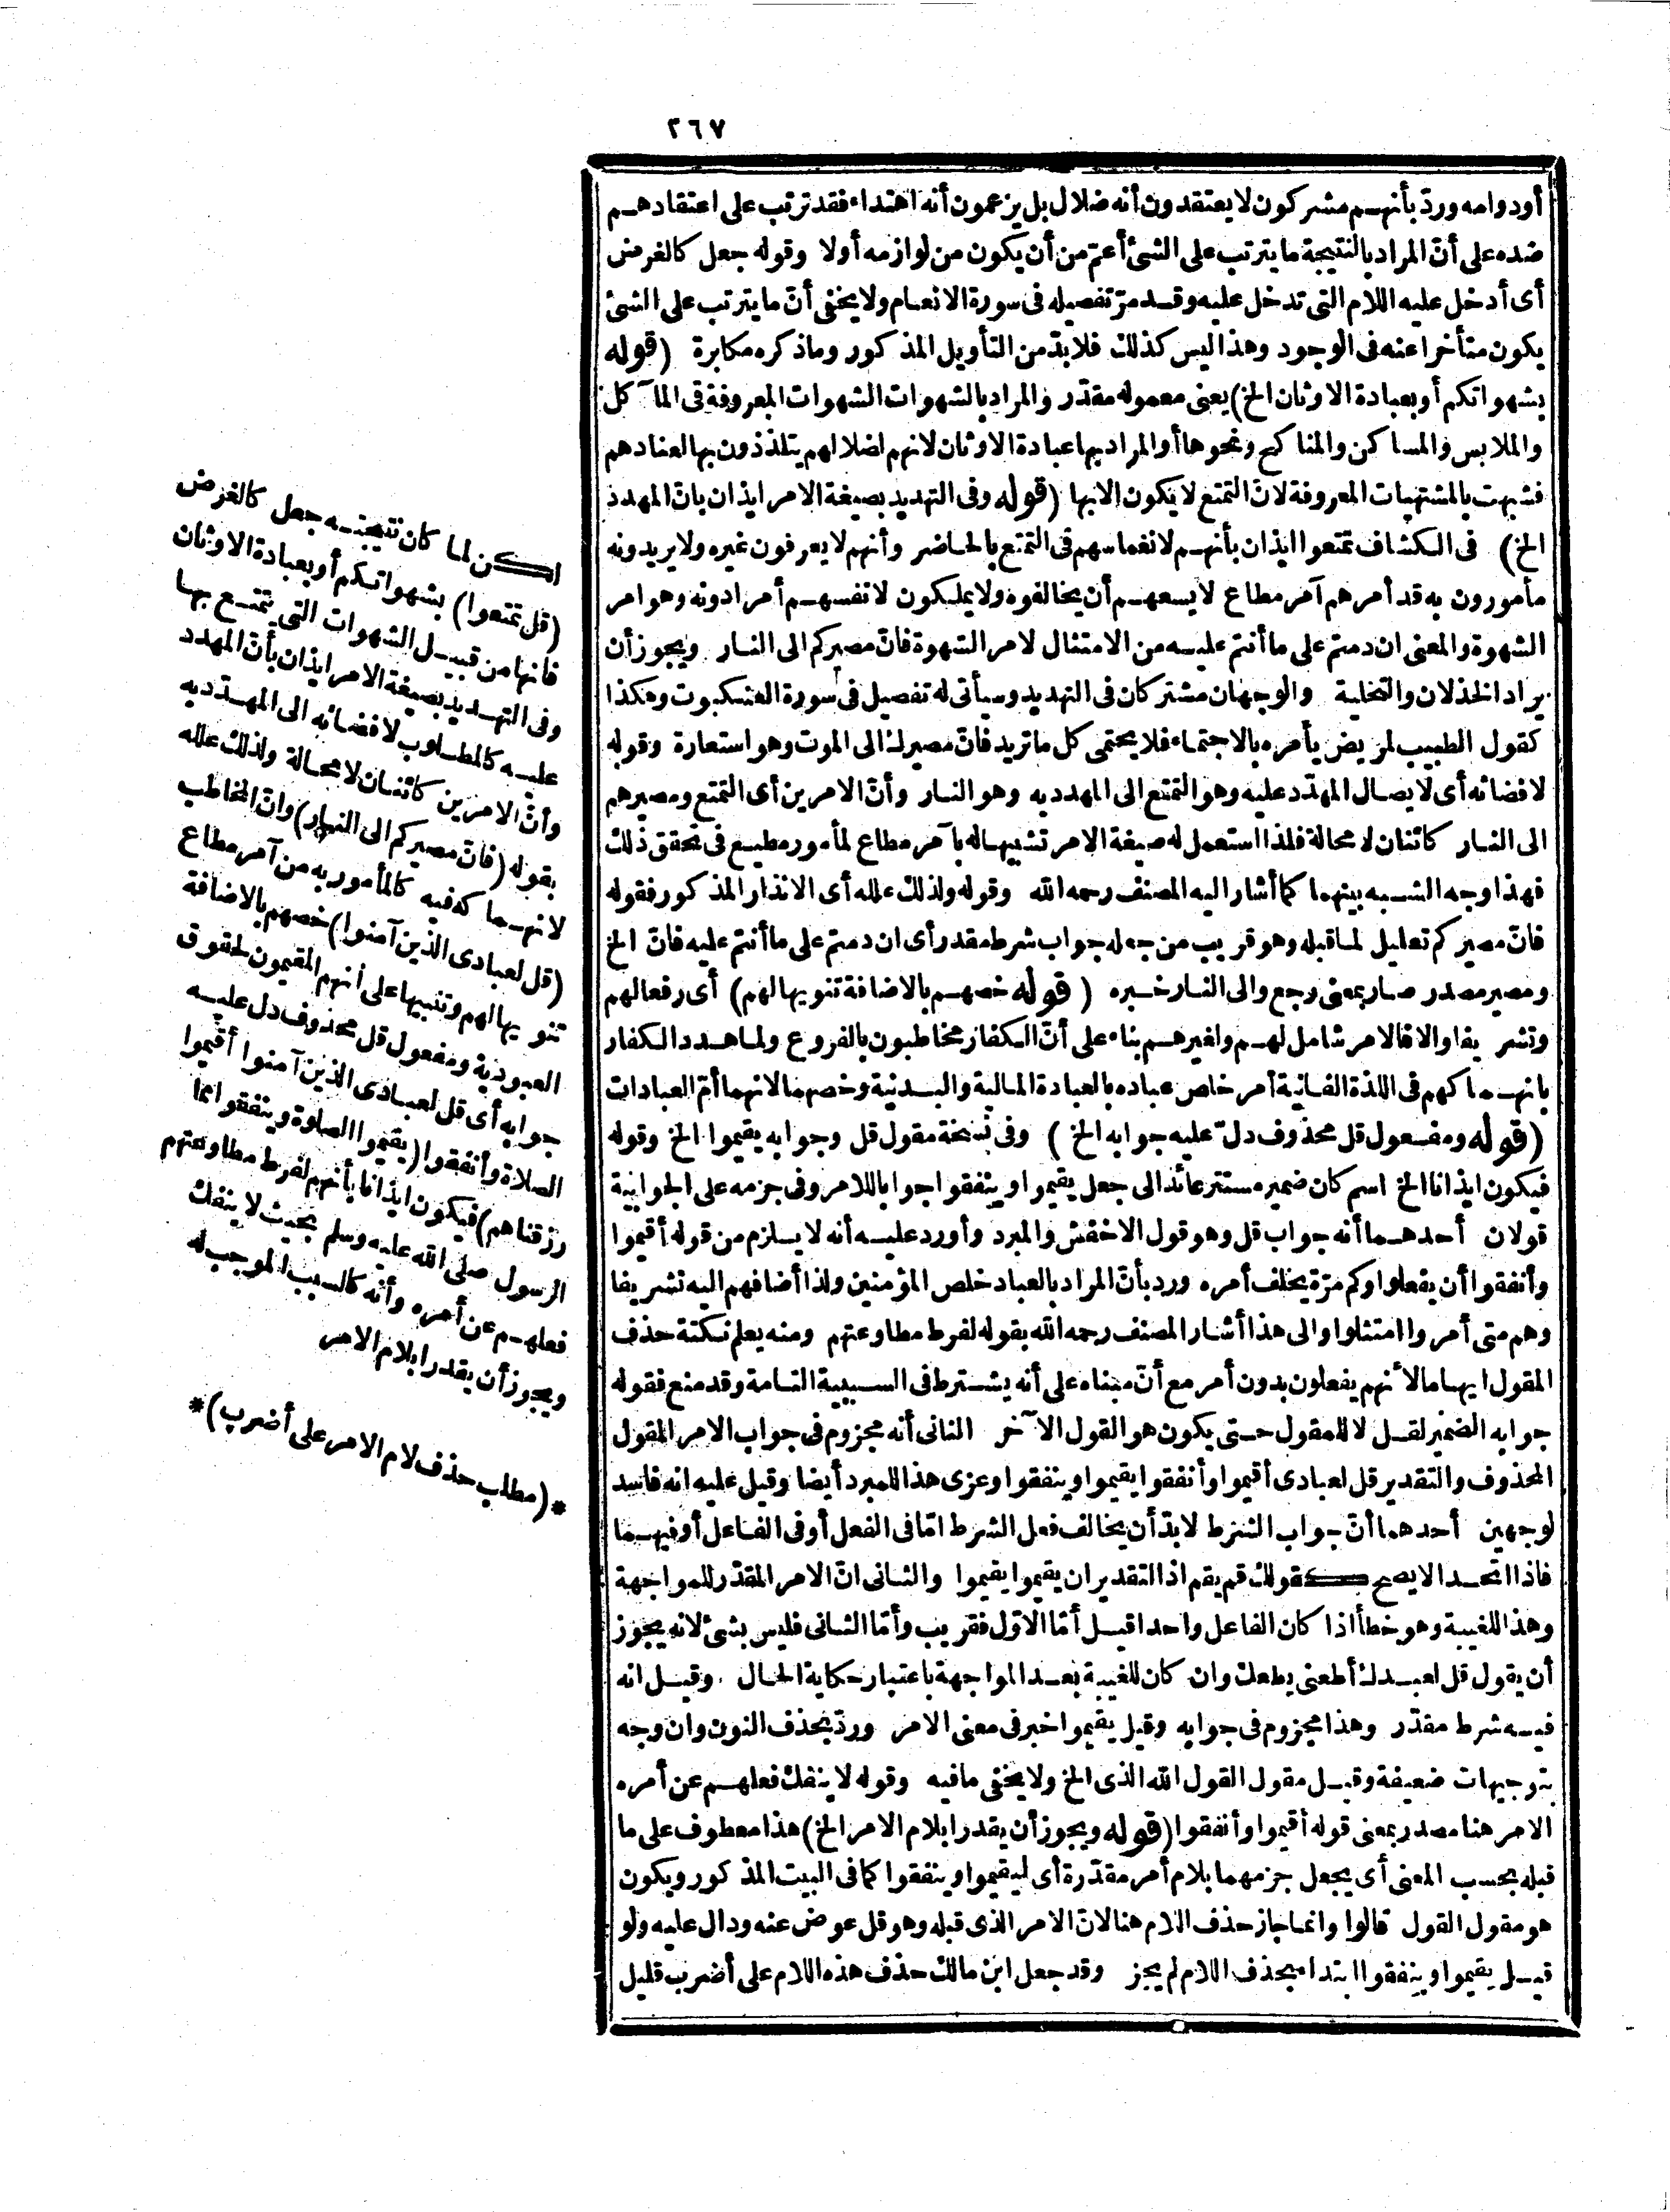 ٢٦٧
أودوامه وردّ بأنهم مشركون لا يعتقدون أنه ضلال بل يزعمون أنه اهتداء فقد ترتب على اعتقادهم
ضده على أنّ المراد بالنتيجة ما يترتب على الشئ أعمّ من أن يكون من لوازمه أولا وقوله جعل كالغرض
أى أدخل عليه اللام التى تدخل عليه وقد مرّ تفصيله فى سورة الانعام ولا يخفى أنّ ما يترتب على الشئ
يكون متأخرا عنه فى الوجود وهذا ليس كذلك فلابدّ من التأويل المذكور وماذكره مكابرة (قوله
بشهواتكم أو بعبادة الاوثان الخ) يعنى معموله مقدّر والمراد بالشهوات الشهوات المعروفة فى المآكل
والملابس والمساكن والمناكح ونحوها أو المراد بها عبادة الاوثان لانهم لضلالهم يتلذذون بها لعنادهم
فشبهت بالمشتهيات المعروفة لانّ التمتع لا يكون الابها (قوله وفى التهديد بصيغة الامر ايذان بانّ المهدد
الخ) فى الكشاف تمتعوا ايذان بأنهم لانغماسهم فى التمتع بالحاضر وأنهم لا يعرفون غيره ولا يريدونه
مأمورون به قد أمرهم آمر مطاع لا يسعهم أن يخالفوه ولا يملكون لانفسهم أمرا دونه وهو امر
الشهوة والمعنى ان دمتم على ما أنتم عليه من الامتثال لامر الشهوة فانّ مصيركم الى النار ويجوز أن
يراد الخذلان والتخلية والوجهان مشتركان فى التهديد وسيأتى له تفصيل فى سورة العنكبوت وهكذا
كقول الطبيب لمريض يأمره بالاحتماء فلا يحتمى كل ما تريد فانّ مصيرك الى الموت وهو استعارة وقوله
لافضائه أى لا يصال المهدّد عليه وهو التمتع الى المهدد به وهو النار وأنّ الامرين أى التمتع ومصيرهم
الى النار كائنان لا محالة فلذا استعمل له صيغة الامر تشبيهاله بآمر مطاع لمأمور مطيع فى تحقق ذلك
فهذا وجه الشبه بينهما كما أشار اليه المصنف رحمه الله وقوله ولذلك علله أى الانذار المذكور فقوله
فانّ مصيركم تعليل لما قبله وهو قريب من جعله جواب شرط مقدر أى ان دمتم على ما أنتم عليه فانّ الخ
ومصير مصدر صار بمعنى رجع والى النار خبره (قوله خصهم بالاضافة تنويها لهم) أى رفعا لهم
وتشريفا والا فالامر شامل لهم ولغيرهم بناء على أنّ الكفار مخاطبون بالفروع ولما هدد الكفار
بانهماكهم فى اللذة الفانية أمر خاص عباده بالعبادة المالية والبدنية وخصهما لانهما أمّ العبادات
(قوله ومفعول قل محذوف دلّ عليه جوابه الخ) وفى نسخة مقول قل وجوابه يقيموا الخ وقوله
فيكون ايذانا الخ اسم كان ضمير مستتر عائد الى جعل يقيموا وينفقوا جوابا للامر وفى جزمه على الجوابية
قولان أحدهما أنه جواب قل وهو قول الاخفش والمبرد وأورد عليه أنه لا يلزم من قوله أقيموا
وأنفقوا أن يفعلوا وكم مرّة يخلف أمره ورد بأنّ المراد بالعباد خلص المؤمنين ولذا أضافهم اليه تشريفا
وهم متى أمروا امتثلوا والى هذا أشار المصنف رحمه الله بقوله لفرط مطاوعتهم ومنه يعلم نكتة حذف
المقول ايهاما لأنهم يفعلون بدون أمر مع أنّ مبناه على أنه يشترط فى السببية التامة وقد منع فقوله
جوابه الضمير لقل لا للمقول حتى يكون هو القول الآخر الثانى أنه مجزوم فى جواب الامر المقول
المحذوف والتقدير قل لعبادى أقيموا وأنفقوا يقيموا وينفقوا وعزى هذا للمبرد أيضا وقيل عليه انه فاسد
لوجهين أحدهما أنّ جواب الشرط لابدّ أن يخالف فعل الشرط امّا فى الفعل أو فى الفاعل أو فيهما
فاذا اتحدا لا يصح كقولك قم يقم اذ التقدير ان يقيموا يقيموا والثانى انّ الامر المقدّر للمواجهة
وهذا للغيبة وهو خطأ اذا كان الفاعل واحدا قيل أمّا الاوّل فقريب وأمّا الثانى فليس بشئ لانه يجوز
أن يقول قل لعبدك أطعنى يطعك وان كان للغيبة بعد المواجهة باعتبار حكاية الحال وقيل انه
فيه شرط مقدّر وهذا مجزوم فى جوابه وقيل يقيموا خبر فى معنى الامر وردّ بحذف النون وان وجه
بتوجيهات ضعيفة وقيل مقول القول الله الذى الخ ولا يخفى مافيه وقوله لا ينفك فعلهم عن أمره
الامر هنا مصدر بمعنى قوله أقيموا وأنفقوا (قوله ويجوز أن يقدرا بلام الامر الخ) هذا معطوف على ما
قبله بحسب المعنى أى يجعل جزمهما بلام أمر مقدّرة أى ليقيموا وينفقوا كما فى البيت المذكور ويكون
هو مقول القول قالوا وانما جاز حذف اللام هنا لانّ الامر الذى قبله وهو قل عوض عنه ودال عليه ولو
قيل يقيموا وينفقوا ابتداء بحذف اللام لم يجز وقد جعل ابن مالك حذف هذه اللام على أضرب قليل
لكن لما كان نتيجته جعل كالغرض
(قل تمتعوا) بشهواتكم أو بعبادة الاوثان
فانها من قبيل الشهوات التى يتمتع بها
وفى التهديد بصيغة الامر ايذان بأن المهدد
عليه كالمطلوب لافضائه الى المهدّد به
وأنّ الامرين كائنان لا محالة ولذلك علله
بقوله (فانّ مصيركم الى النار) وانّ المخاطب
لانهماكه فيه كالمأمور به من آمر مطاع
(قل لعبادى الذين آمنوا) خصهم بالاضافة
تنويها لهم وتنبيها على أنهم المقيمون لحقوق
العبودية ومفعول قل محذوف دل عليه
جوابه أى قل لعبادى الذين آمنوا أقيموا
الصلاة وأنفقوا (يقيموا الصلوة وينفقوا مما
رزقناهم) فيكون ايذانا بأنهم لفرط مطاوعتهم
الرسول صلى الله عليه وسلم بحيث لا ينفك
فعلهم عن أمره وأنه كالسبب الموجب له
ويجوز أن يقدرا بلام الامر
*(مطلب حذف لام الامر على أضرب)*